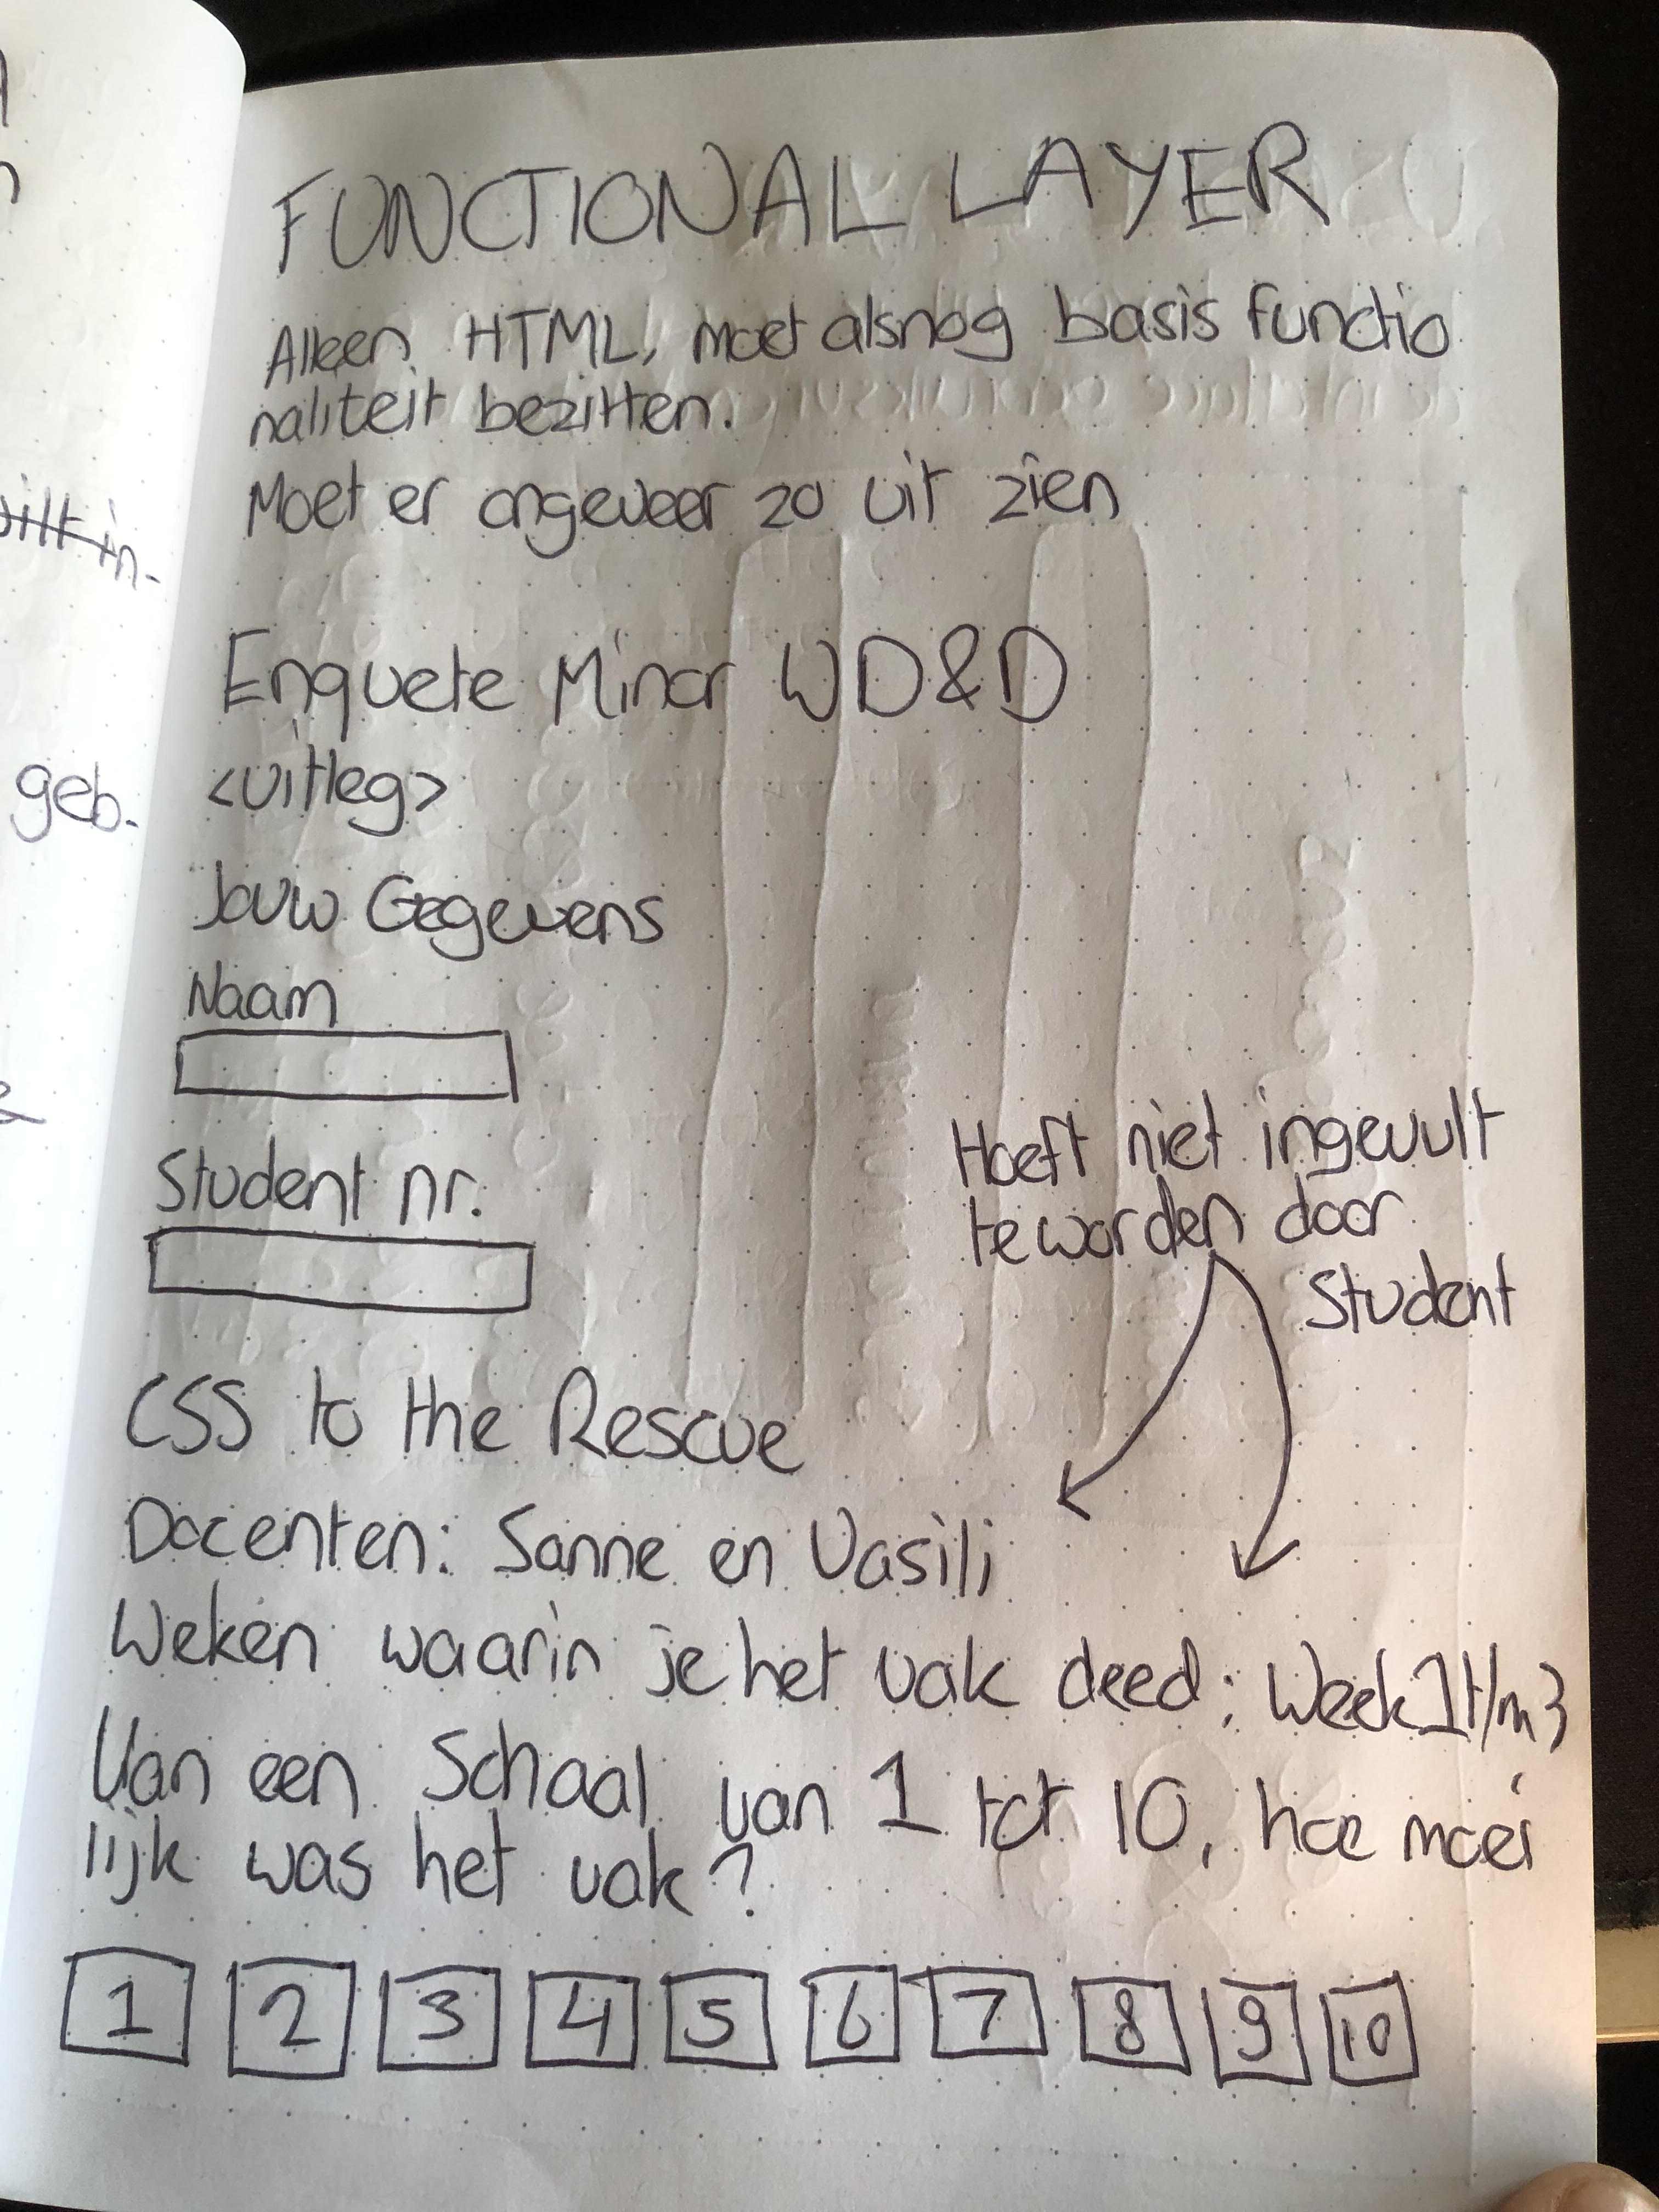 FUNCTIONAL LAYER
Alleen HTML, moet alsnog basis functio
naliteit bezitten.
Moet er ongeveer zo uit zien
Enquete Minor WD&D
<uitleg>
Jouw Gegevens
Naam
Student nr.
Hoeft niet ingevult
te worden door
Student
CSS to the Rescue
Docenten: Sanne en Vasilj
Weken waarin je het vak deed: Week 1 t/m 3
Van een Schaal van 1 tot 10, hoe moei
lijk was het vak?
1 2 3 4 5 6 7 8 9 10
geb.